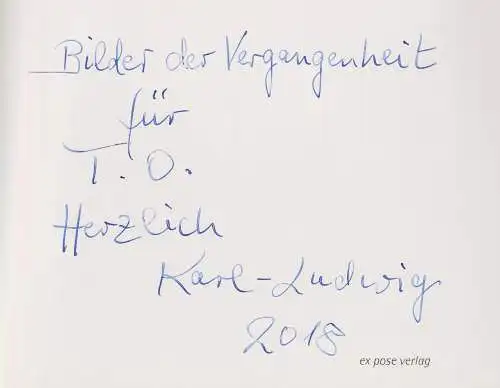 Bilder der Vergangenheit
für
T. O.
Herzlich
Karl-Ludwig
2018
ex pose verlag